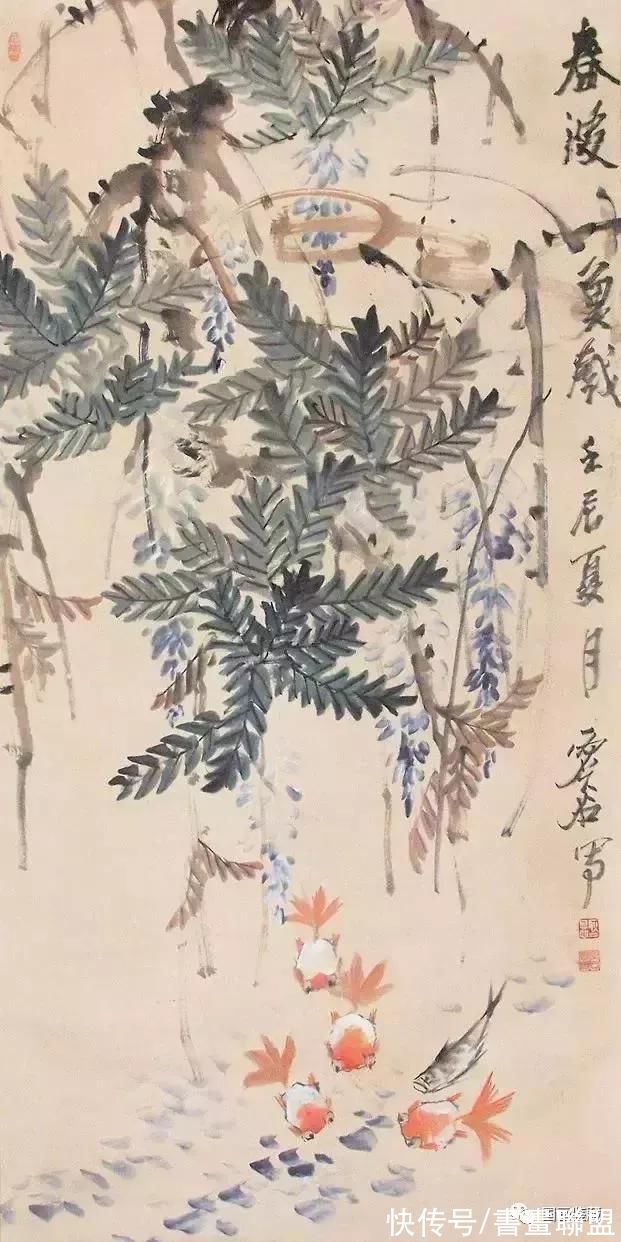 春波魚戲 壬辰夏月 写
快传号/書畫聯盟